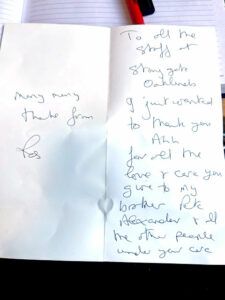 Many many
thanks from
To all the
staff at
Oaklands
I just wanted
to thank you
Ahh
for all the
love & care you
give to my
brother
Alexander & all
the other people
under your care